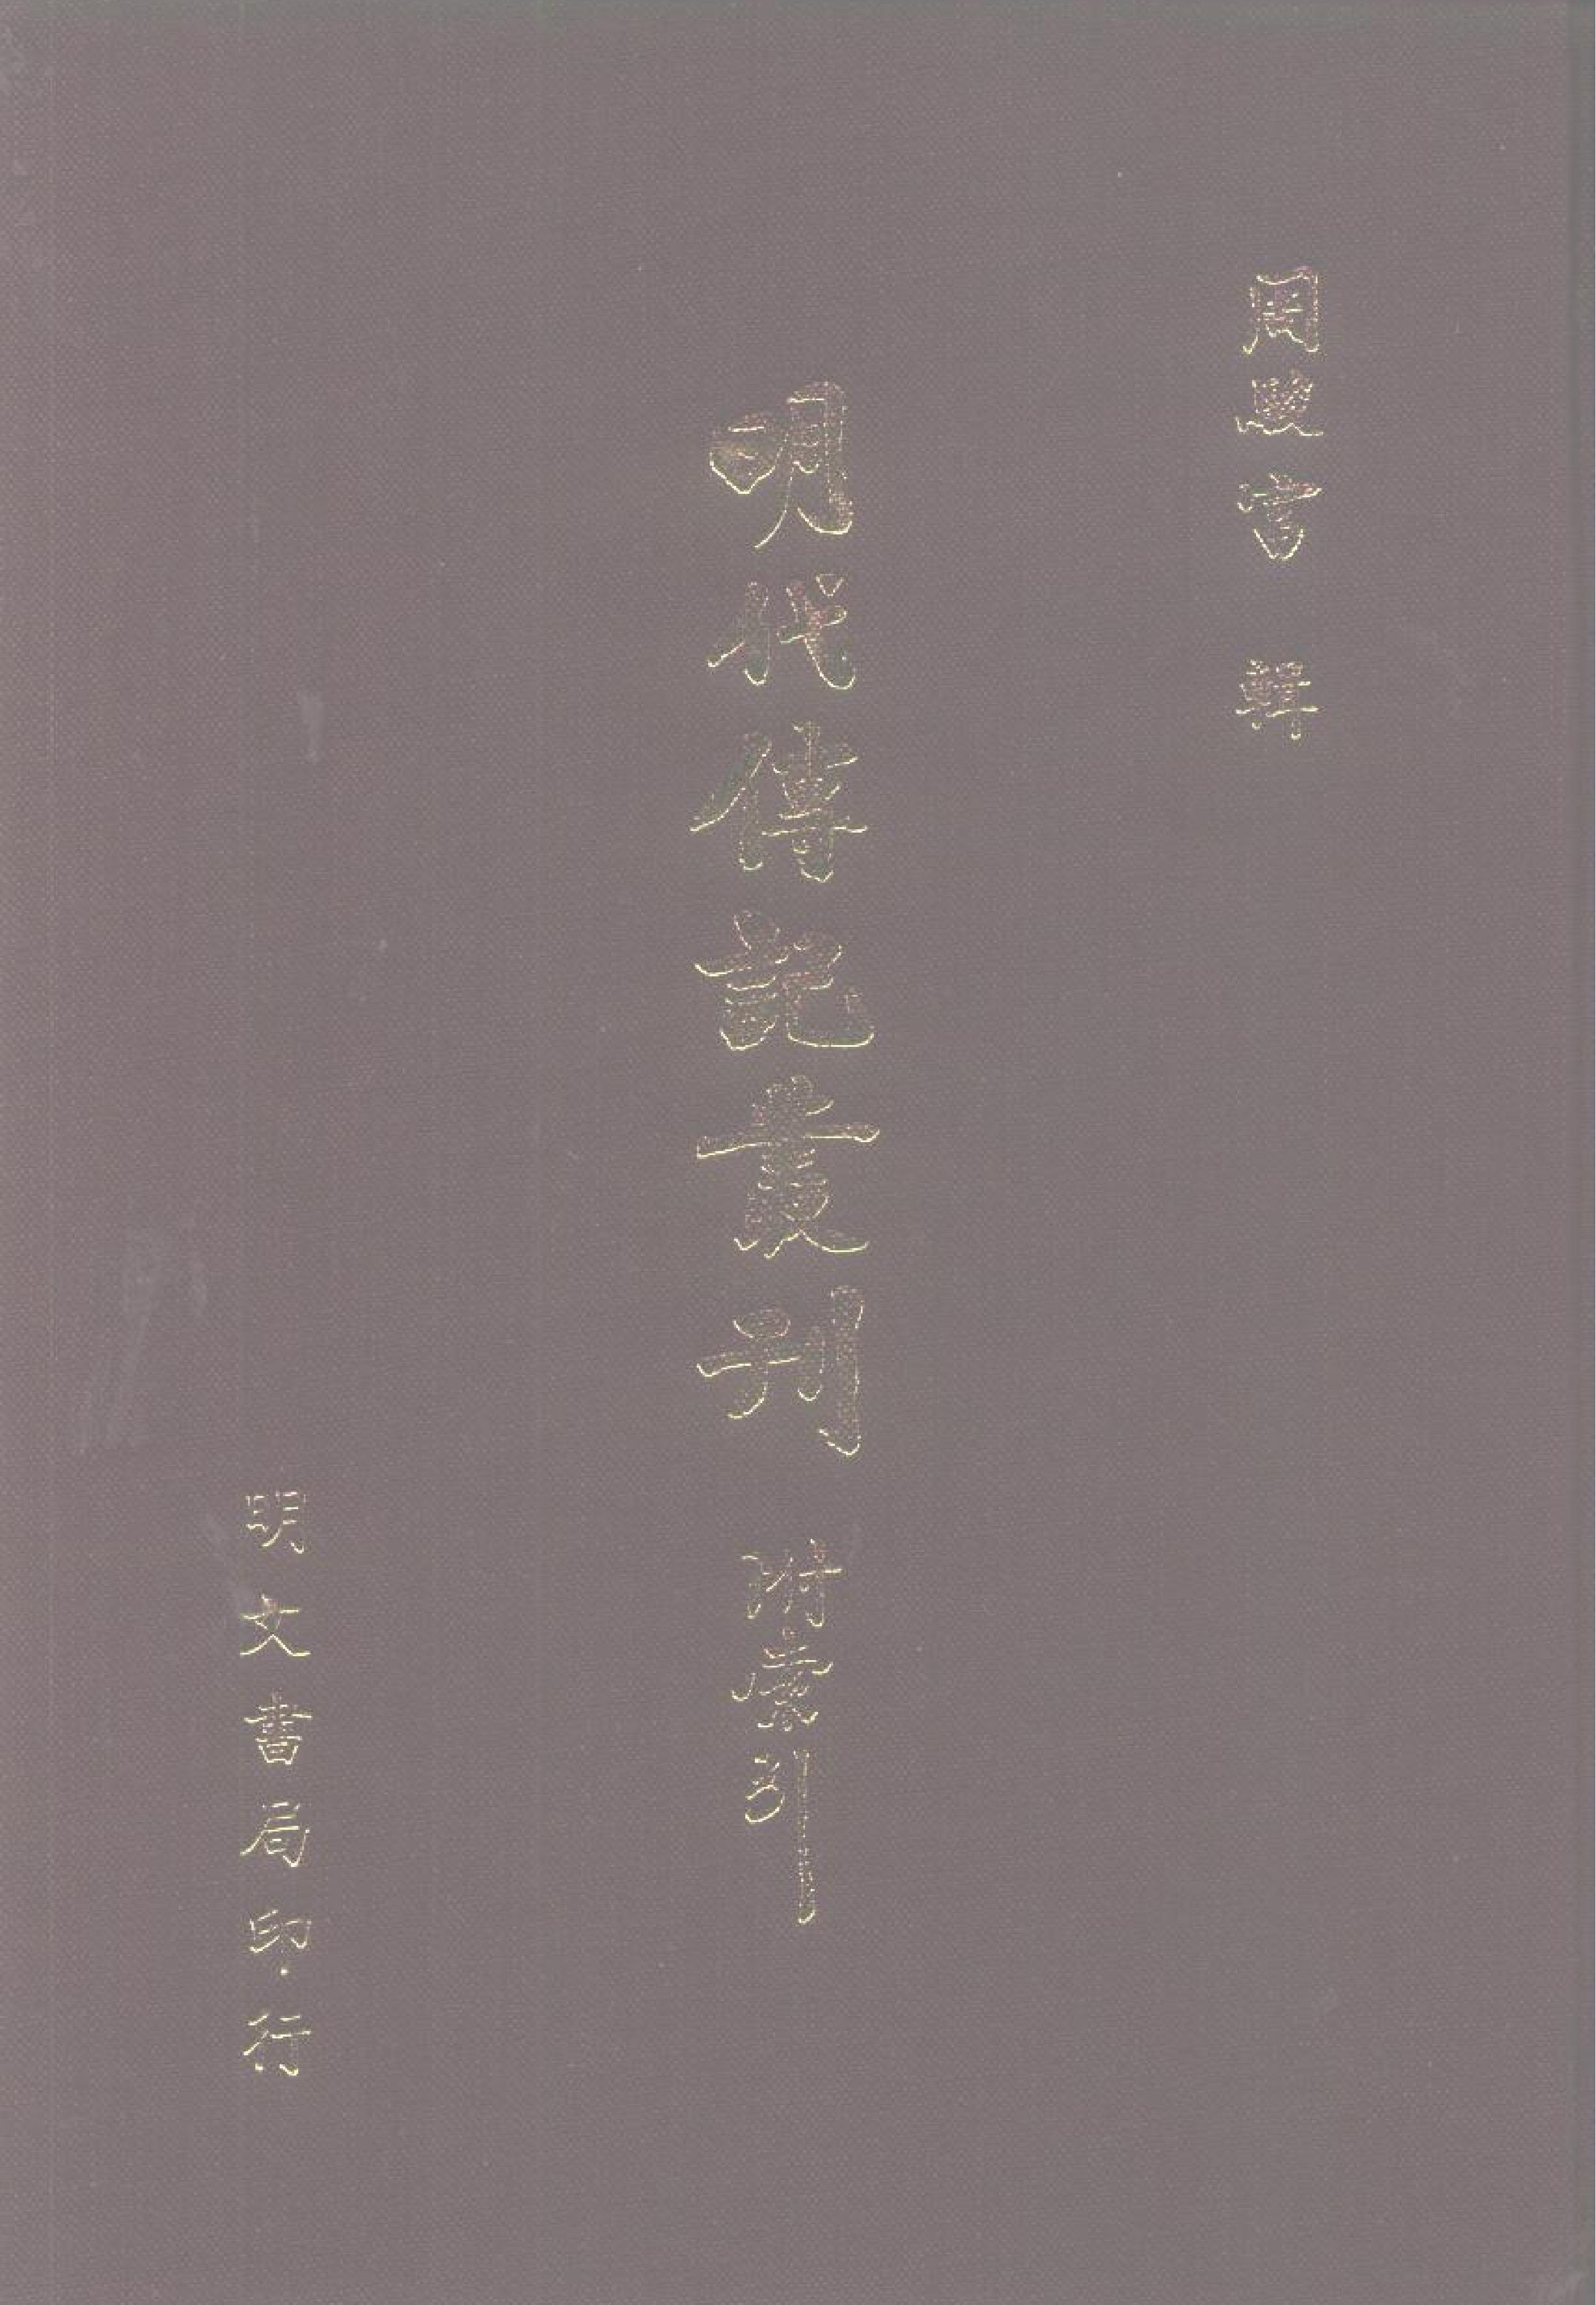 周駿富 輯
明代傳記叢刊 附索引
明文書局印行